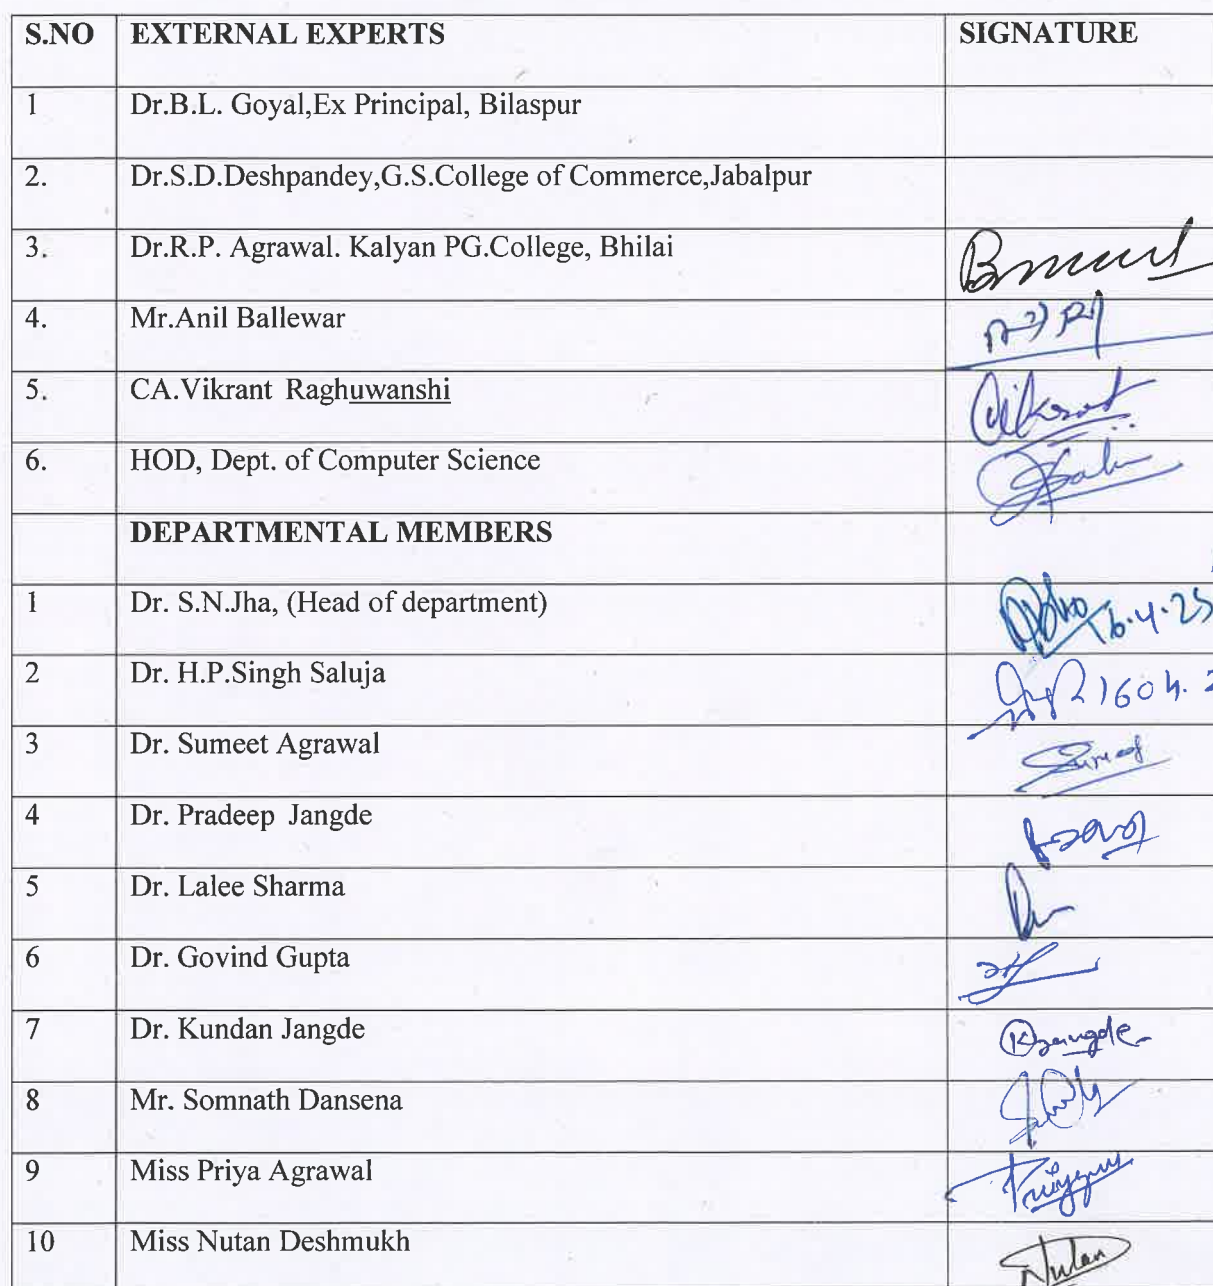 S.NO EXTERNAL EXPERTS SIGNATURE
1 Dr.B.L. Goyal,Ex Principal, Bilaspur
2. Dr.S.D.Deshpandey,G.S.College of Commerce,Jabalpur
3. Dr.R.P. Agrawal. Kalyan PG.College, Bhilai
4. Mr.Anil Ballewar
5. CA.Vikrant Raghuwanshi Vikrant
6. HOD, Dept. of Computer Science
DEPARTMENTAL MEMBERS
1 Dr. S.N.Jha, (Head of department) 16.4.25
2 Dr. H.P.Singh Saluja
3 Dr. Sumeet Agrawal Sumeet
4 Dr. Pradeep Jangde
5 Dr. Lalee Sharma
6 Dr. Govind Gupta
7 Dr. Kundan Jangde KJangde
8 Mr. Somnath Dansena
9 Miss Priya Agrawal
10 Miss Nutan Deshmukh Nutan